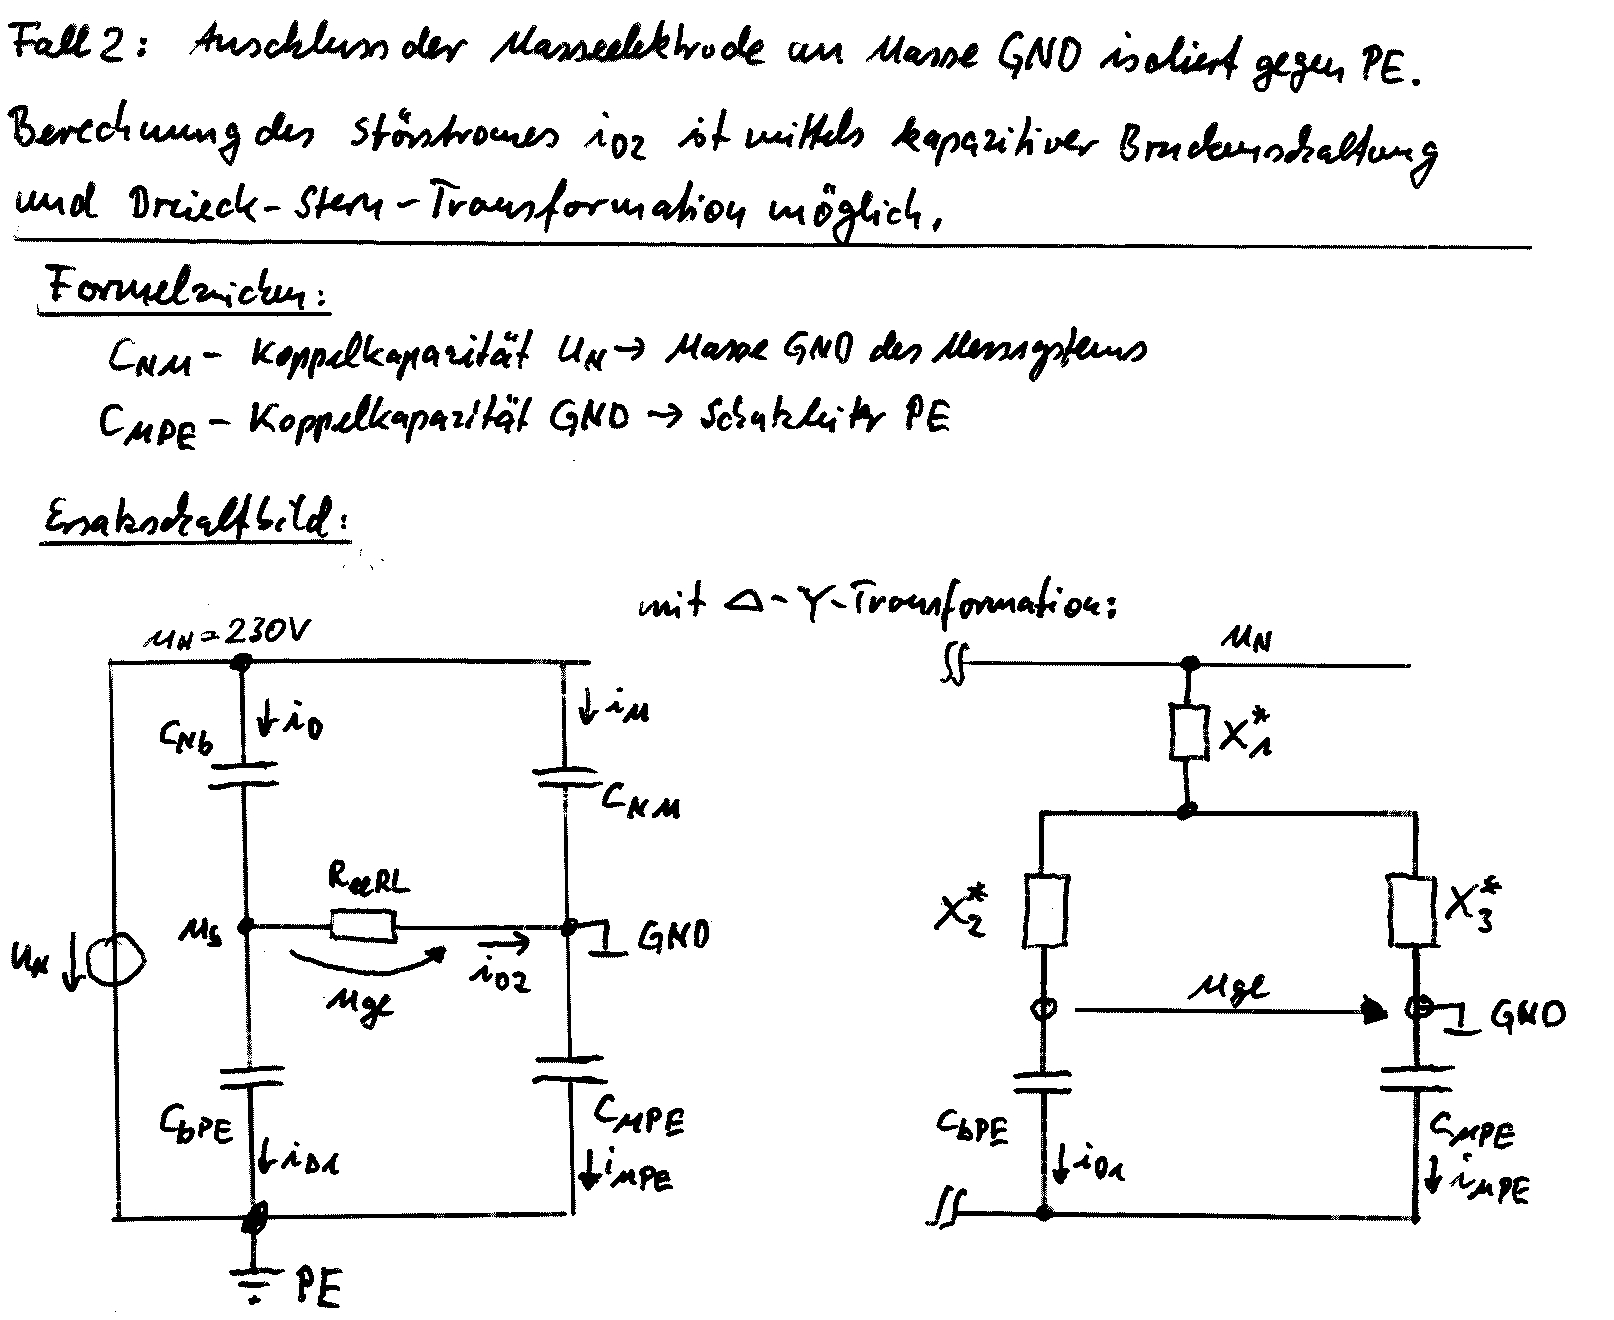 Fall 2: Anschluss der Masseelektrode an Masse GND isoliert gegen PE.
Berechnung des Störstromes iD2 ist mittels kapazitiver Brückenschaltung
und Dreieck-Stern-Transformation möglich.
Formelzeichen:
CNM - Koppelkapazität UN → Masse GND des Messsystems
CMPE - Koppelkapazität GND → Schutzleiter PE
Ersatzschaltbild:
mit Δ-Y-Transformation:
uN = 230V
uN
CNb
iD
iM
X1*
CNM
RelRL
X2*
X3*
ub
GND
uN
iD2
ugl
ugl
GND
CbPE
CMPE
CbPE
CMPE
iD1
iMPE
iD1
iMPE
PE